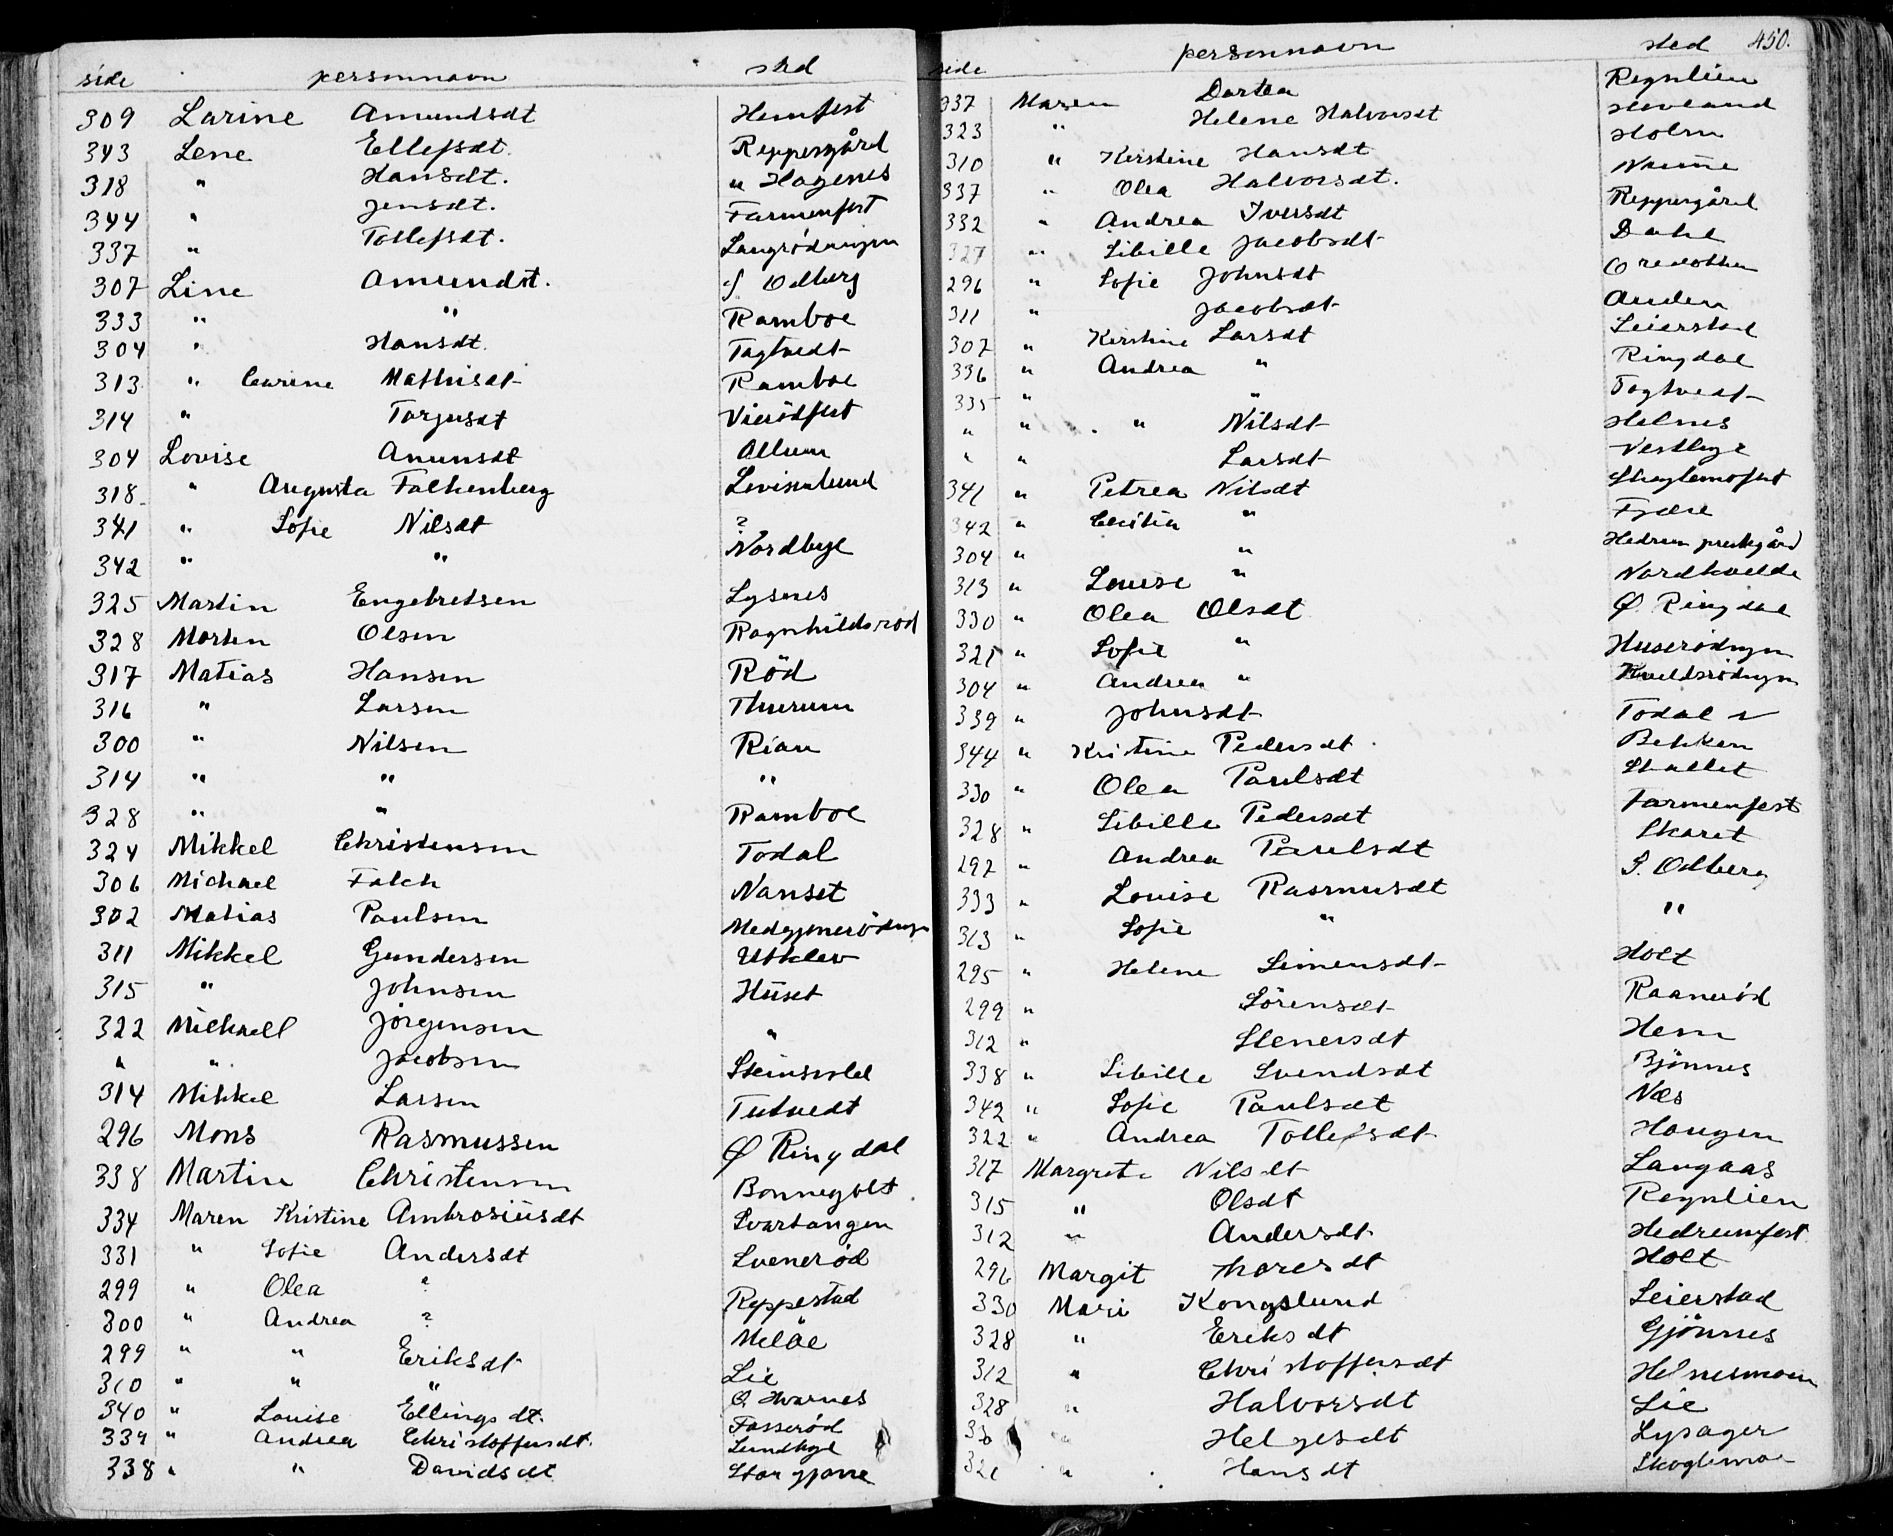 side personnavn sted
309 Larine Amundsdt Hemfest
343 Lene Ellefsdt. Reppesgård
318 " Hansdt. " Hagenes
344 " Jensdt. Farmenfest
337 " Tollefsdt. Langrödningen
307 Line Amundst. S Odberg
333 " " Ramboe
304 " Hansdt. Tagtvedt
313 " Carine Mathisdt Ramboe
314 " Torjusdt Vierödfest
304 Lovise Anunsdt Allum
318 " Augusta Falkenberg Lovisenlund
341 " Sofie Nilsdt ?
342 " " Nordbye
325 Martin Engebretsen Lysnes
328 Morten Olsen Ragnhildsrod
317 Matias Hansen Röd
316 " Larsen Thuerum
300 " Nilsen Rian
314 " " "
328 " " Ramboe
324 Mikkel Christensen Todal
306 Michael Falch Nanset
302 Matias Paulsen
311 Mikkel Gundersen Utklev
315 " Johnsen Huset
322 Michaell Jörgensen "
" " Jacobsen Steinsvold
314 Mikkel Larsen Tutvedt
296 Mons Rasmussen Ø Ringdal
338 Martin Christensen Bonnegolt
334 Maren Kristine Ambrosiusdt Svartangen
331 " Sofie Andersdt Svenerød
299 " Olea ? Reppestad
300 " Andrea ? Meløe
299 " " Eriksdt Lie
310 " " " O. Hvarnes
340 " Louise Ellingsdt. Fosserød
334 " Andrea Christoffersdt. Lundbye
338 " " Davidsdt Storgjorne
side personnavn sted 450.
337 Maren Dortea Regnlien
323 " Helene Halvorsdt Hovland
310 " Kirstine Hansdt Holm
337 " Olea Halvorsdt.
332 " Andrea Iversdt Reppesgård
327 " Sibille Jacobsdt Dahl
296 " Sofie Johnsdt
311 " Jacobsdt Anden
307 " Kirstine Larsdt Leierstad
336 " Andrea " Ringdal
335 " " Tagtvedt
" " " Nilsdt Helnes
" " Larsdt Vestbye
341 " Petrea Nilsdt
342 " Cecilia " Fjære
304 " " Hedrum prestegård
313 " Lovise " Nordkvelde
330 " Olea Olsdt Ø. Ringdal
321 " Sofie "
304 " Andrea "
339 " Johnsdt Todal v
344 " Kristine Pedersdt Bekken
330 " Olea Paulsdt Skallet
328 " Sibille Pedersdt Farmenfest
297 " Andrea Paulsdt Skaret
333 " Louise Rasmusdt S. Odberg
313 " Sofie " "
295 " Helene Simensdt Holt
299 " Sörensdt Raanerød
312 " Stenersdt Hem
338 " Sibille Svendsdt Bjönnes
342 " Sofie Paulsdt Næs
322 " Andrea Tollefsdt Haugen
317 Margrete Nilsdt Langaas
315 " Olsdt Regnlien
312 " Andersdt Hedrumfest
296 Margit Thoresdt Holt
330 Mari Kongslund Leierstad
328 " Eriksdt Gjönnes
312 " Christoffersdt Helnesmoen
328 " Halvorsdt Lie
" Helgesdt Lysager
" Hansdt Skoglemoe